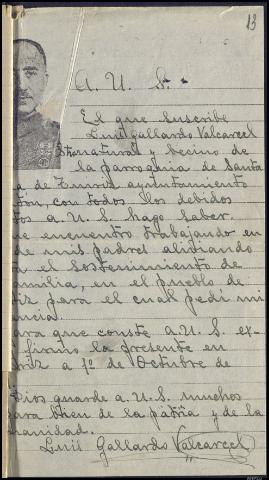 13
A. U. S.
El que suscribe
Luis Gallardo Valcarcel
natural y becino de
la parroquia de Santa
a de ayuntamiento
con todos los debidos
tos a U. S. hago saber
me encuentro trabajando en
de mis padres aliviando
a el sostenimiento de
amilia, en el pueblo de
para el cual pedi mi
ancia.
ara que conste a U. S. ex-
firmo la presente en
a 1º de Octubre de
Dios guarde a U. S. muchos
para bien de la patria y de la
manidad.
Luis Gallardo Valcarcel